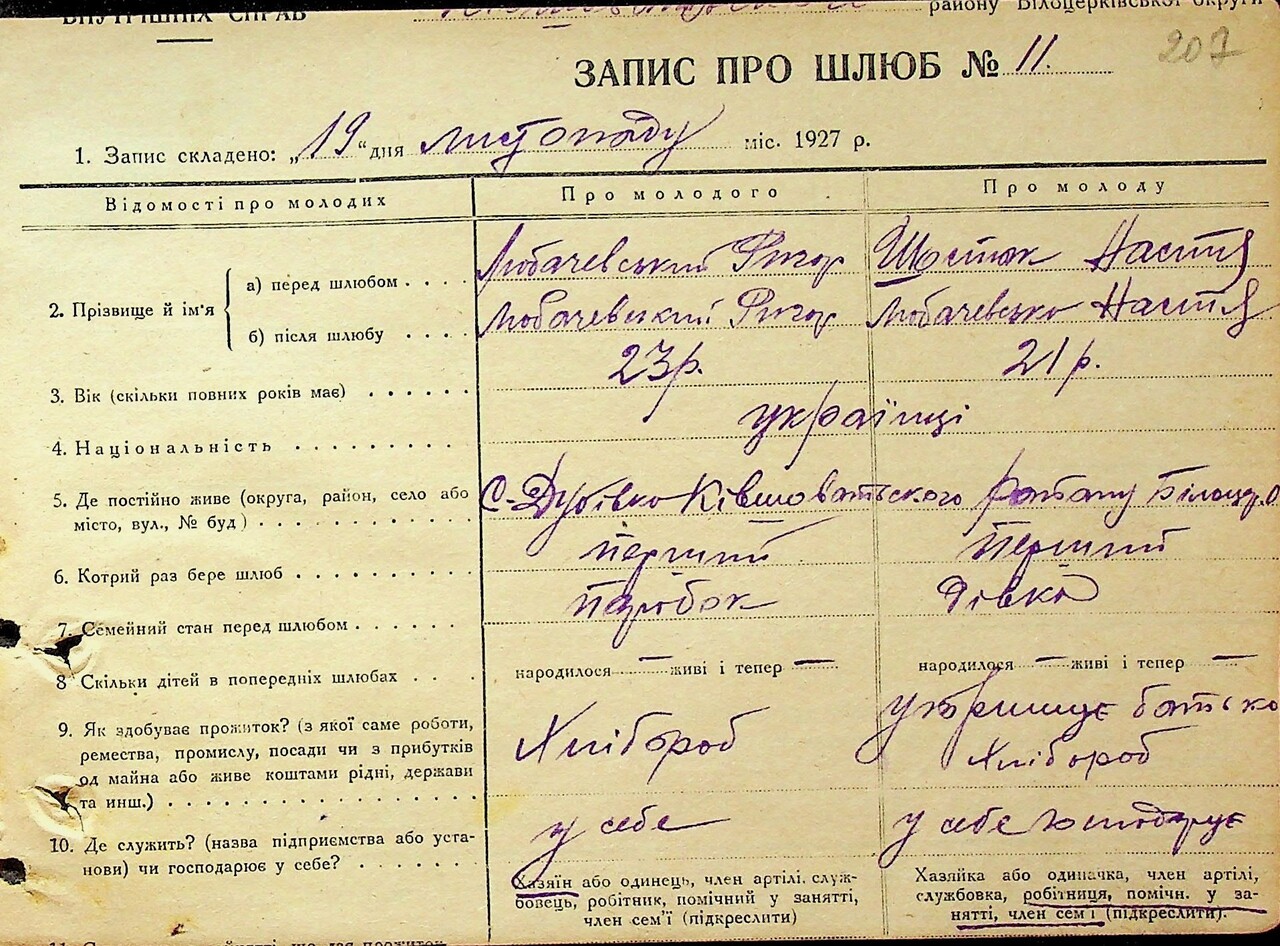 ВНУТРІШНІХ СПРАВ району Білоцерківської округи
207
ЗАПИС ПРО ШЛЮБ № 11.
1. Запис складено: „19“ дня листопаду міс. 1927 р.
Відомості про молодих Про молодого Про молоду
2. Прізвище й ім'я
а) перед шлюбом . . . . Любачевський Григор Шостюк Настя
б) після шлюбу . . . . Любачевський Григор Любачевсько Настя
3. Вік (скільки повних років має) . . . . . . 23 р. 21 р.
4. Національність . . . . . . . . українці
5. Де постійно живе (округа, район, село або
місто, вул., № буд) . . . . . . . . . . С-Дубівко Ківшоватьського району Білоцер. О
6. Котрий раз бере шлюб . . . . . . . . . перший перший
7. Семейний стан перед шлюбом . . . . . . парубок дівка
8 Скільки дітей в попередніх шлюбах . . . народилося — живі і тепер — народилося — живі і тепер —
9. Як здобуває прожиток? (з якої саме роботи,
ремества, промислу, посади чи з прибутків
од майна або живе коштами рідні, держави
та инш.) . . . . . . . . . . . . . . .
Хлібороб
утримує батько
Хлібороб
10. Де служить? (назва підприємства або уста-
нови) чи господарює у себе? . . . . . . .
у себе
у себе господарує
Хазяїн або одинець, член артілі, служ-
бовець, робітник, помічний у занятті,
член сем'ї (підкреслити)
Хазяйка або одиначка, член артілі,
службовка, робітниця, помічн. у за-
нятті, член сем'ї (підкреслити).